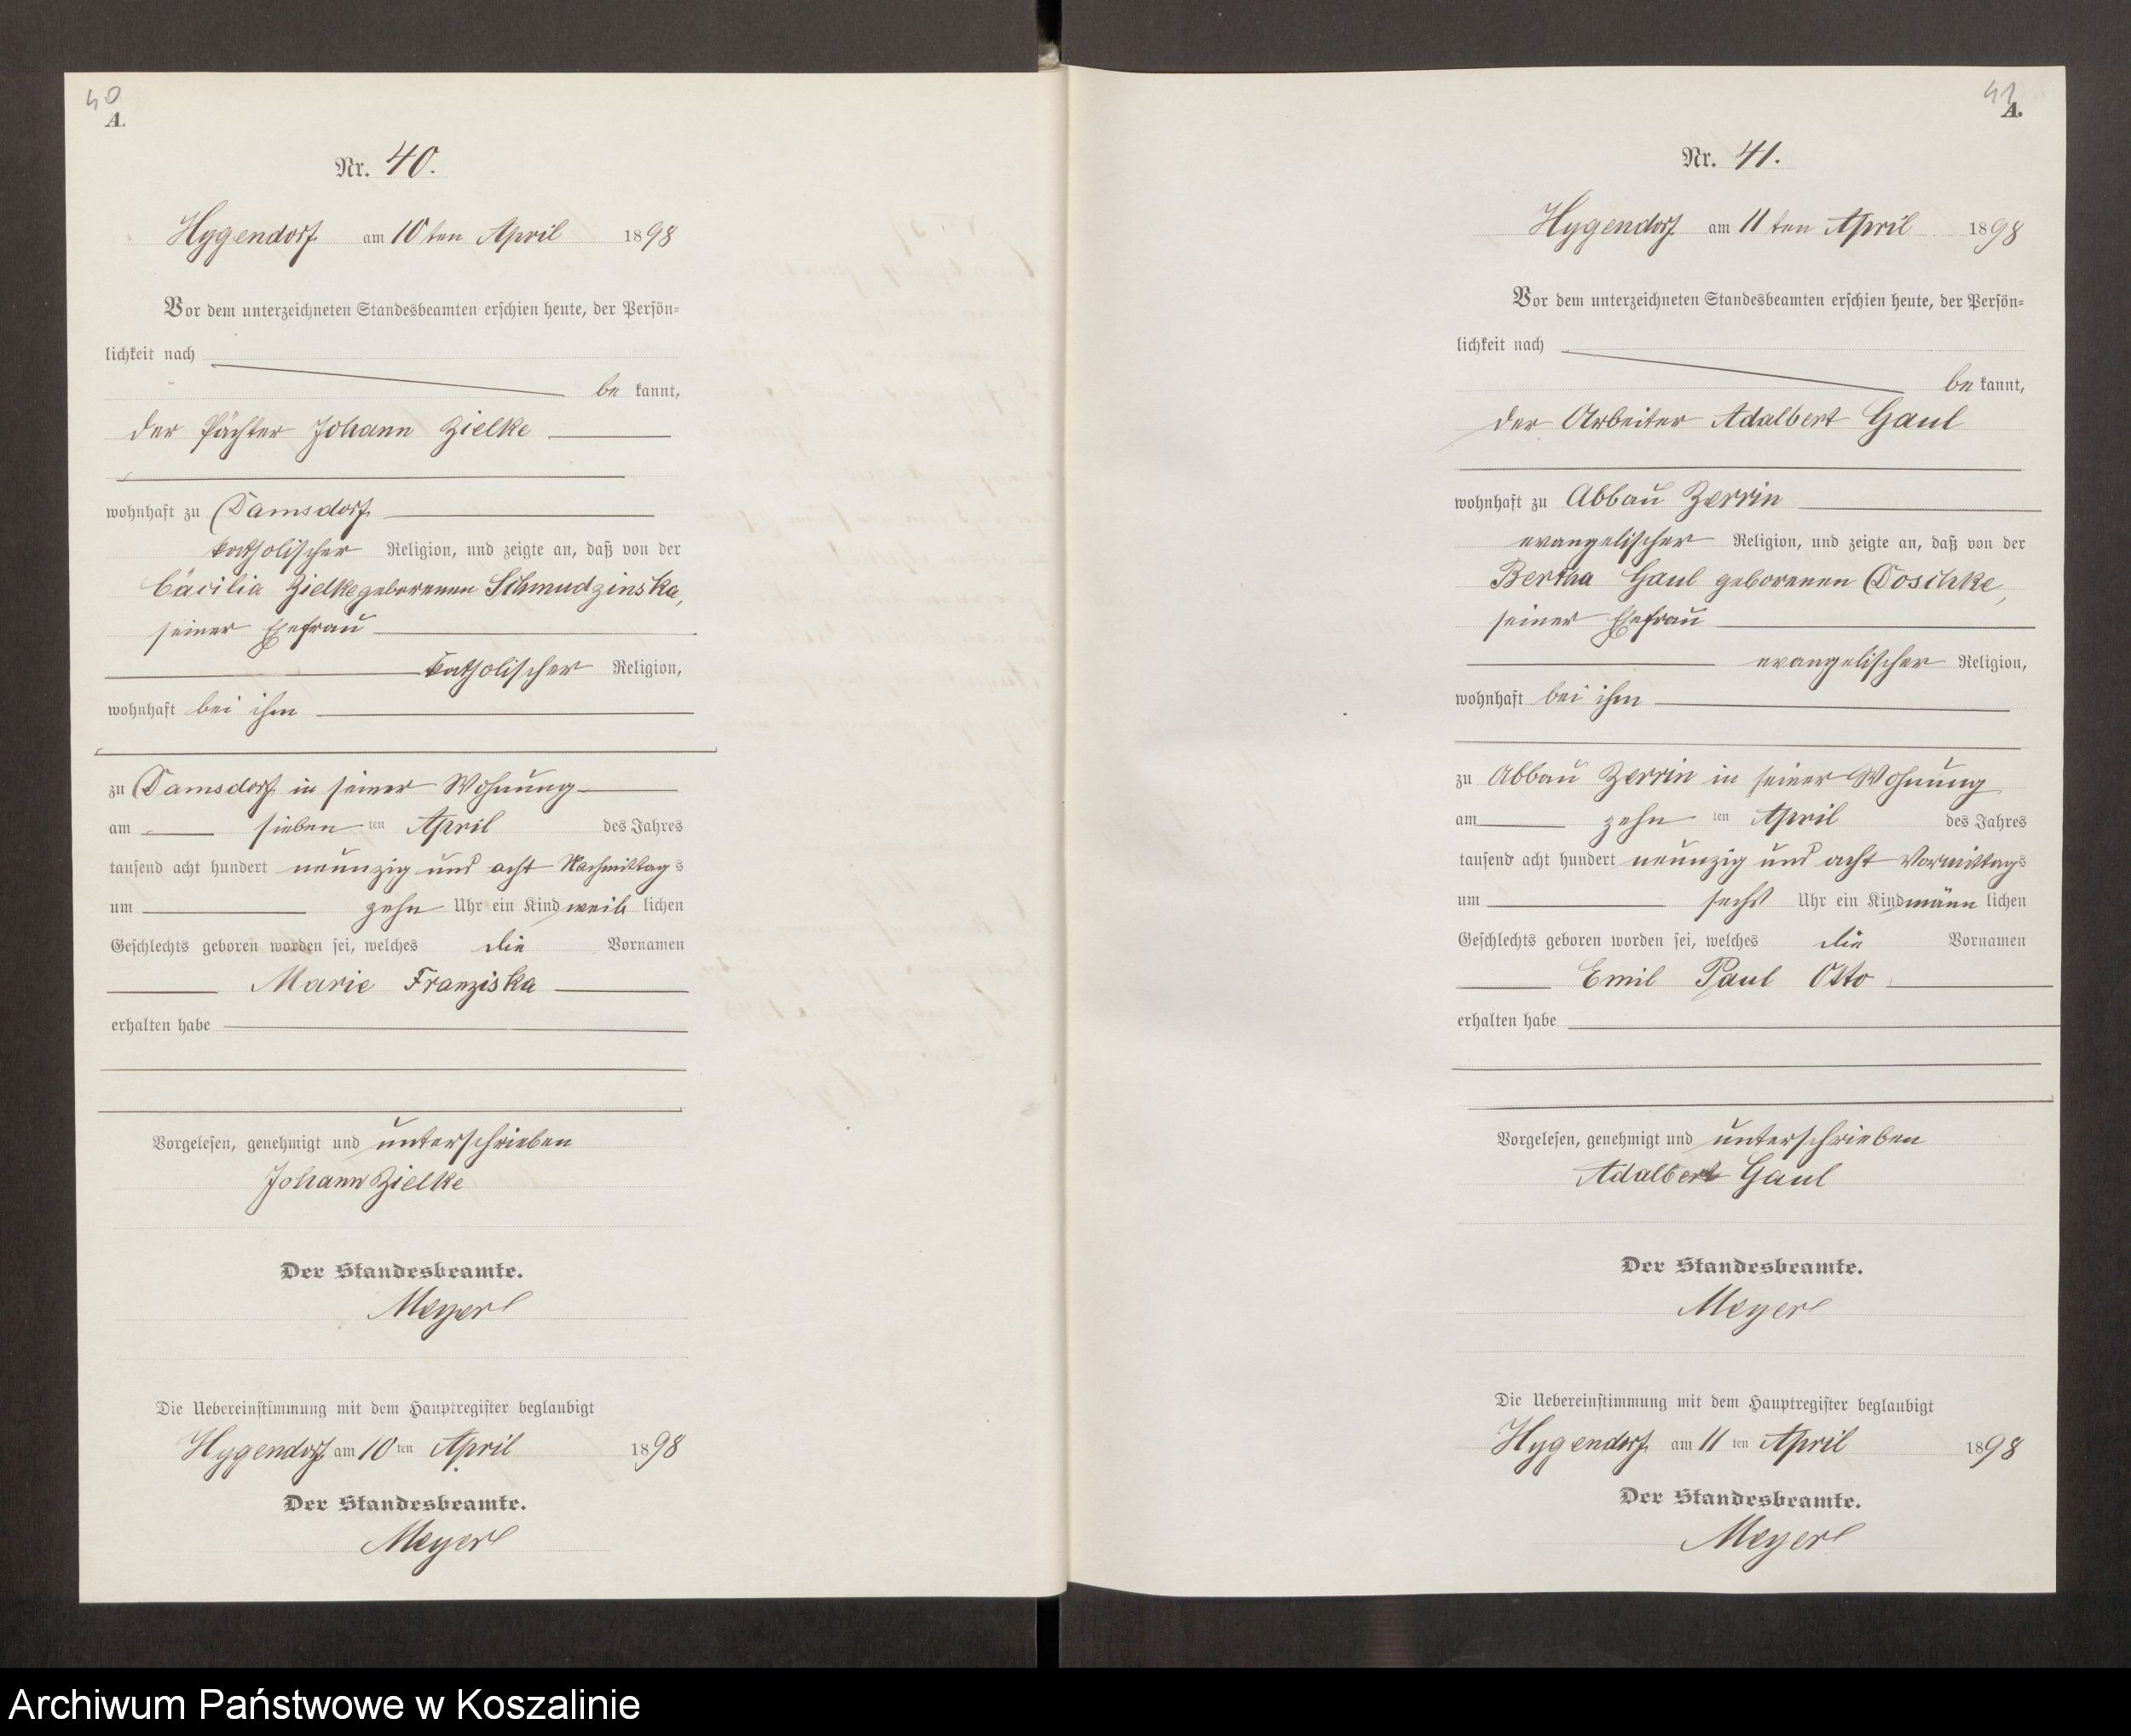 40
A.
Nr. 40.
Hygendorf am 10 ten April 1898
Vor dem unterzeichneten Standesbeamten erschien heute, der Persön=
lichkeit nach
be kannt,
der Pächter Johann Zielke
wohnhaft zu Damsdorf
katholischer Religion, und zeigte an, daß von der
Cäcilia Zielke geborenen Schmudzinska,
seiner Ehefrau
katholischer Religion,
wohnhaft bei ihm
zu Damsdorf in seiner Wohnung
am sieben ten April des Jahres
tausend acht hundert neunzig und acht Nachmittag s
um zehn Uhr ein Kind weib lichen
Geschlechts geboren worden sei, welches die Vornamen
Marie Franziska
erhalten habe
Vorgelesen, genehmigt und unterschrieben
Johann Zielke
Der Standesbeamte.
Meyer
Die Uebereinstimmung mit dem Hauptregister beglaubigt
Hygendorf am 10 ten April 1898
Der Standesbeamte.
Meyer
41
A.
Nr. 41.
Hygendorf am 11 ten April 1898
Vor dem unterzeichneten Standesbeamten erschien heute, der Persön=
lichkeit nach
be kannt,
der Arbeiter Adalbert Gaul
wohnhaft zu Abbau Zerrin
evangelischer Religion, und zeigte an, daß von der
Bertha Gaul geborenen Doschke,
seiner Ehefrau
evangelischer Religion,
wohnhaft bei ihm
zu Abbau Zerrin in seiner Wohnung
am zehn ten April des Jahres
tausend acht hundert neunzig und acht Vormittag s
um sechs Uhr ein Kind männ lichen
Geschlechts geboren worden sei, welches die Vornamen
Emil Paul Otto
erhalten habe
Vorgelesen, genehmigt und unterschrieben
Adalbert Gaul
Der Standesbeamte.
Meyer
Die Uebereinstimmung mit dem Hauptregister beglaubigt
Hygendorf am 11 ten April 1898
Der Standesbeamte.
Meyer
Archiwum Państwowe w Koszalinie